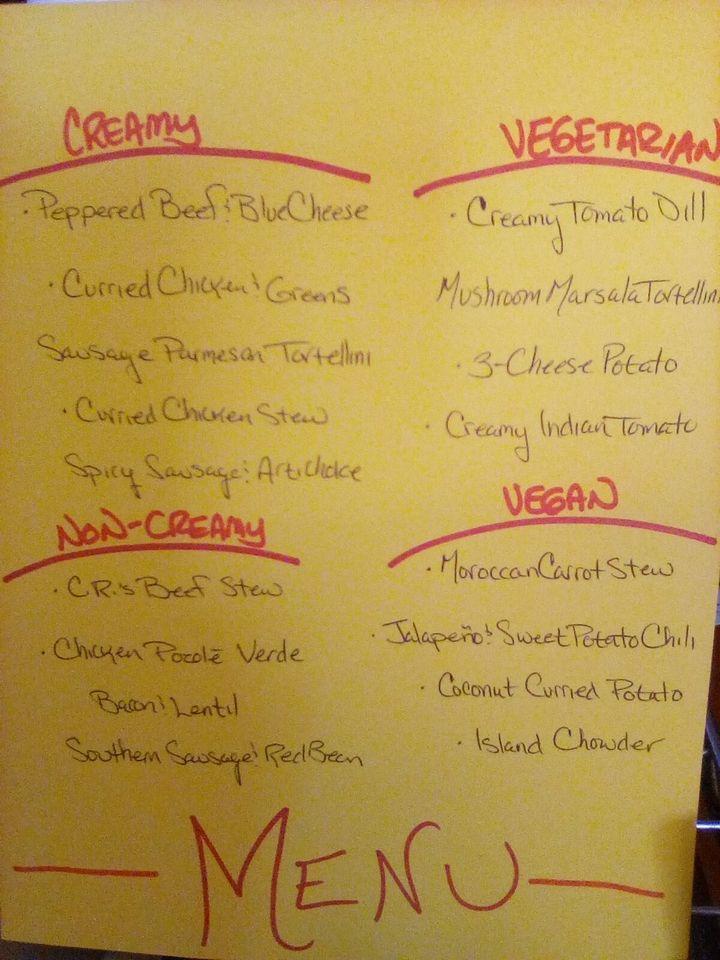 CREAMY
· Peppered Beef & Blue Cheese
· Curried Chicken & Greens
Sausage Parmesan Tortellini
· Curried Chicken Stew
Spicy Sausage & Artichoke
NON-CREAMY
· C.R.'s Beef Stew
· Chicken Pozolé Verde
Bacon & Lentil
Southern Sausage & Red Bean
VEGETARIAN
· Creamy Tomato Dill
Mushroom Marsala Tortellini
· 3-Cheese Potato
· Creamy Indian Tomato
VEGAN
· Moroccan Carrot Stew
· Jalapeño & Sweet Potato Chili
· Coconut Curried Potato
· Island Chowder
MENU